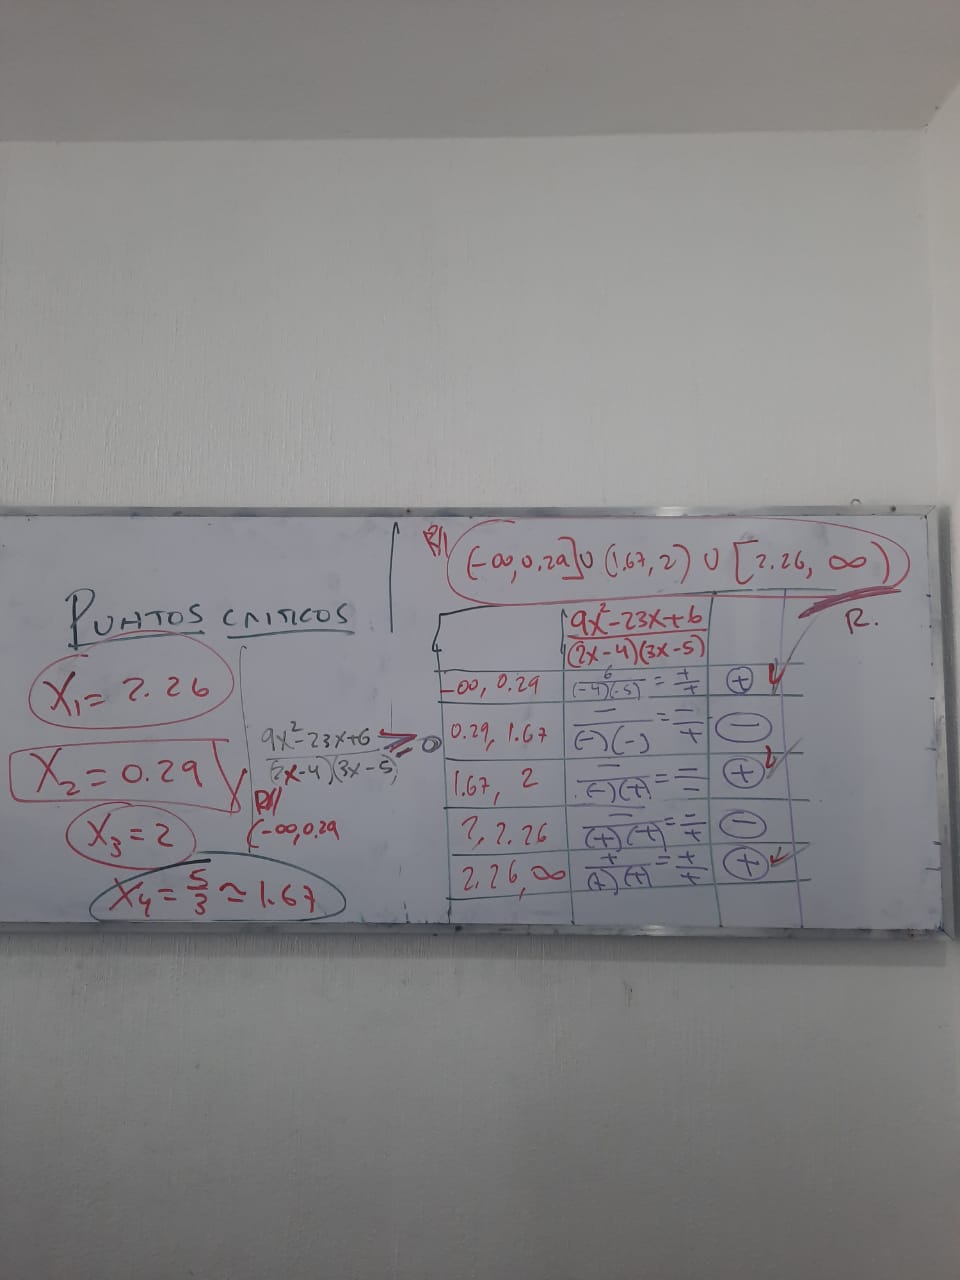 PUNTOS CRITICOS
X₁ = 2.26
X₂ = 0.29
X₃ = 2
X₄ = 5/3 ≈ 1.67
9x²-23x+6 / (2x-4)(3x-5) ≥ 0
R//
(-∞, 0.29
R// (-∞, 0.29] ∪ (1.67, 2) ∪ [2.26, ∞)
R.
9x²-23x+6 / (2x-4)(3x-5)
-∞, 0.29 6/(-4)(-5) = +/+ +
0.29, 1.67 -/(-)(-) = -/+ -
1.67, 2 -/(-)(+) = -/- +
2, 2.26 -/(+)(+) = -/+ -
2.26, ∞ +/(+)(+) = +/+ +